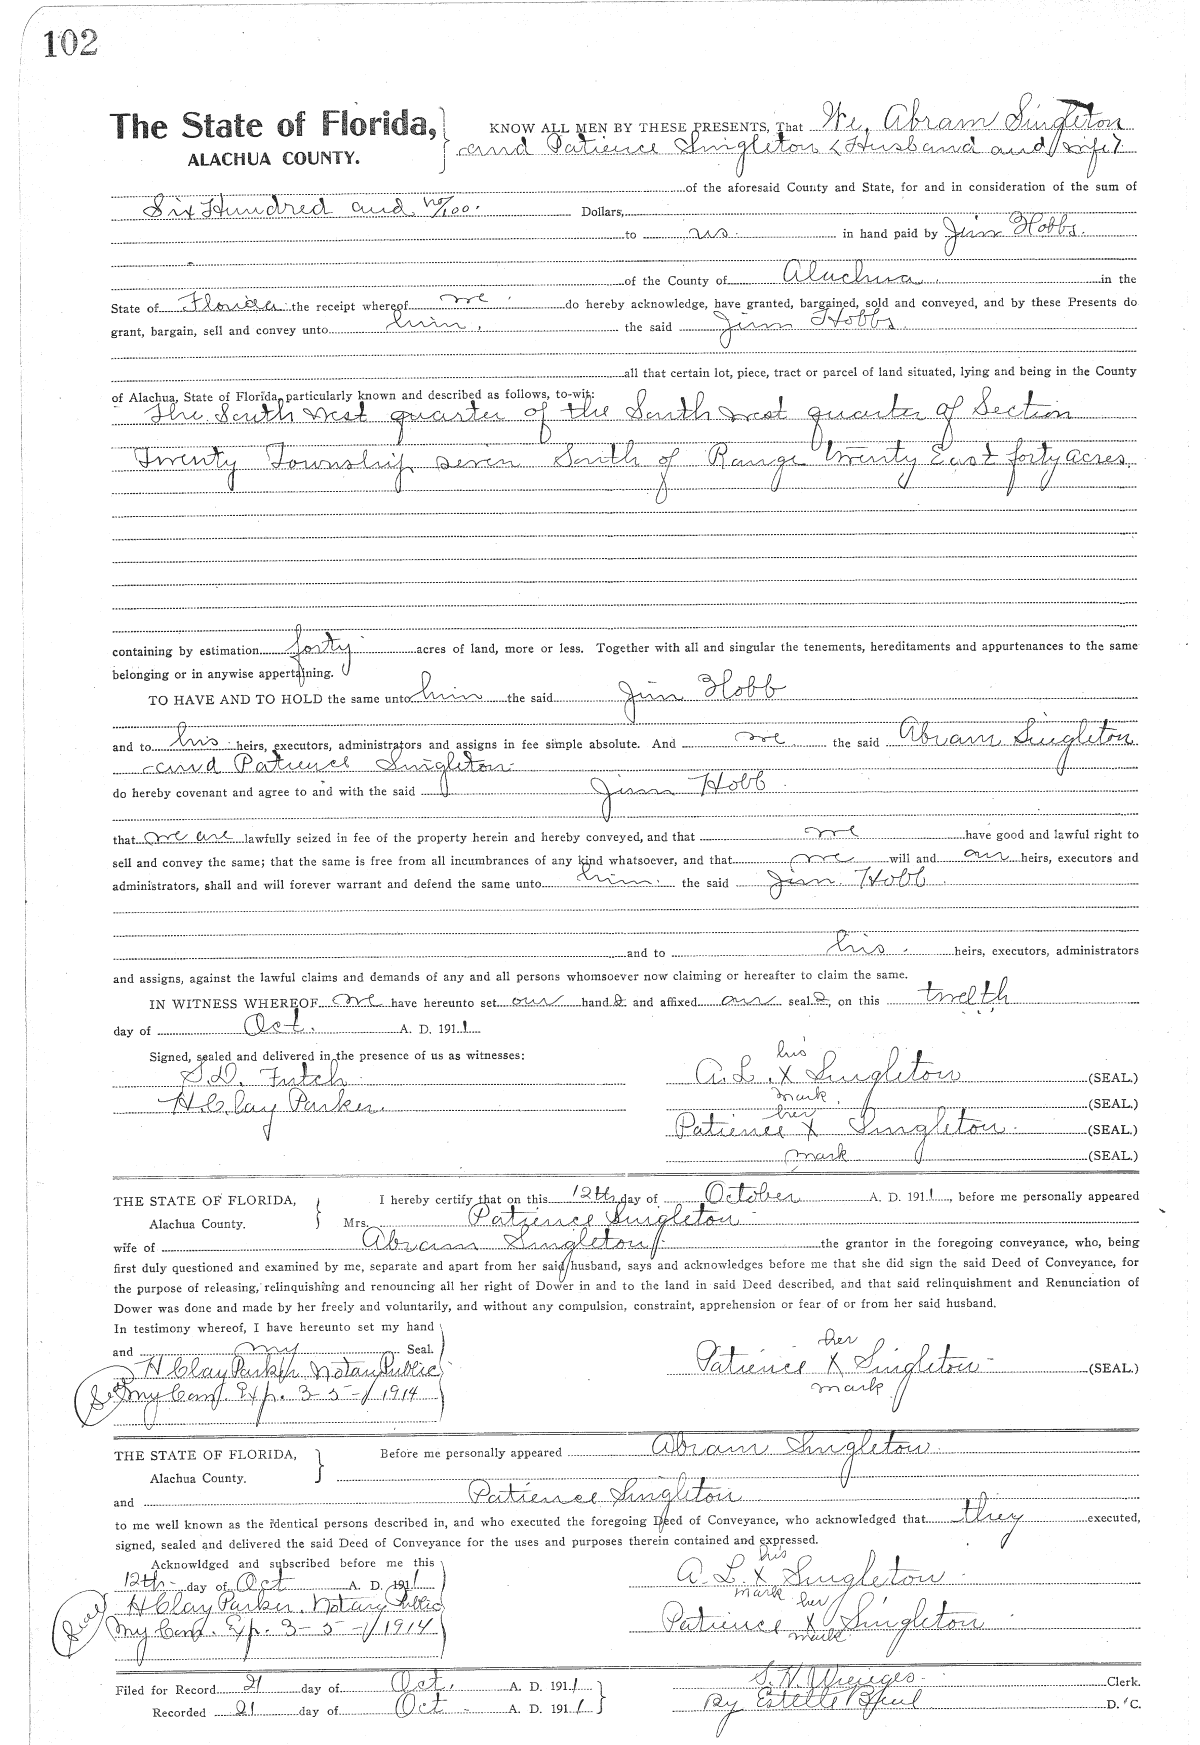 102
The State of Florida, KNOW ALL MEN BY THESE PRESENTS, That We, Abram Singleton
ALACHUA COUNTY. and Patience Singleton (Husband and wife)
of the aforesaid County and State, for and in consideration of the sum of
Six Hundred and no/100. Dollars,
to us. in hand paid by Jim Hobbs.
of the County of Alachua. in the
State of Florida the receipt whereof we do hereby acknowledge, have granted, bargained, sold and conveyed, and by these Presents do
grant, bargain, sell and convey unto him, the said Jim Hobbs
all that certain lot, piece, tract or parcel of land situated, lying and being in the County
of Alachua, State of Florida, particularly known and described as follows, to-wit:
The South west quarter of the South west quarter of Section
Twenty Township seven South of Range twenty East forty acres.
containing by estimation forty acres of land, more or less. Together with all and singular the tenements, hereditaments and appurtenances to the same
belonging or in anywise appertaining.
TO HAVE AND TO HOLD the same unto him the said Jim Hobb
and to his heirs, executors, administrators and assigns in fee simple absolute. And we the said Abram Singleton
and Patience Singleton
do hereby covenant and agree to and with the said Jim Hobb
that we are lawfully seized in fee of the property herein and hereby conveyed, and that we have good and lawful right to
sell and convey the same; that the same is free from all incumbrances of any kind whatsoever, and that we will and our heirs, executors and
administrators, shall and will forever warrant and defend the same unto him. the said Jim Hobb
and to his. heirs, executors, administrators
and assigns, against the lawful claims and demands of any and all persons whomsoever now claiming or hereafter to claim the same.
IN WITNESS WHEREOF we have hereunto set our hand s and affixed our seal s, on this twelth
day of Oct. A. D. 1911
Signed, sealed and delivered in the presence of us as witnesses:
his
S.D. Futch A. L. X Singleton (SEAL.)
mark. (SEAL.)
H. Clay Parker. her
Patience X Singleton (SEAL.)
mark (SEAL.)
THE STATE OF FLORIDA, I hereby certify that on this 12th day of October A. D. 1911, before me personally appeared
Alachua County. Mrs. Patience Singleton
wife of Abram Singleton the grantor in the foregoing conveyance, who, being
first duly questioned and examined by me, separate and apart from her said husband, says and acknowledges before me that she did sign the said Deed of Conveyance, for
the purpose of releasing, relinquishing and renouncing all her right of Dower in and to the land in said Deed described, and that said relinquishment and Renunciation of
Dower was done and made by her freely and voluntarily, and without any compulsion, constraint, apprehension or fear of or from her said husband.
In testimony whereof, I have hereunto set my hand
and my Seal. her
H Clay Parker Notary Public Patience X Singleton (SEAL.)
Seal My Com. Exp. 3-5-1914 mark
THE STATE OF FLORIDA, Before me personally appeared Abram Singleton
Alachua County.
and Patience Singleton
to me well known as the identical persons described in, and who executed the foregoing Deed of Conveyance, who acknowledged that they executed,
signed, sealed and delivered the said Deed of Conveyance for the uses and purposes therein contained and expressed.
Acknowldged and subscribed before me this his
12th day of Oct A. D. 1911 A. L. X Singleton
mark her
H Clay Parker. Notary Public Patience X Singleton
Seal My Com. Exp. 3-5-1914 mark
Filed for Record 21 day of Oct. A. D. 1911 S. H. Wienges Clerk.
Recorded 21 day of Oct A. D. 1911 By Estelle D. C.